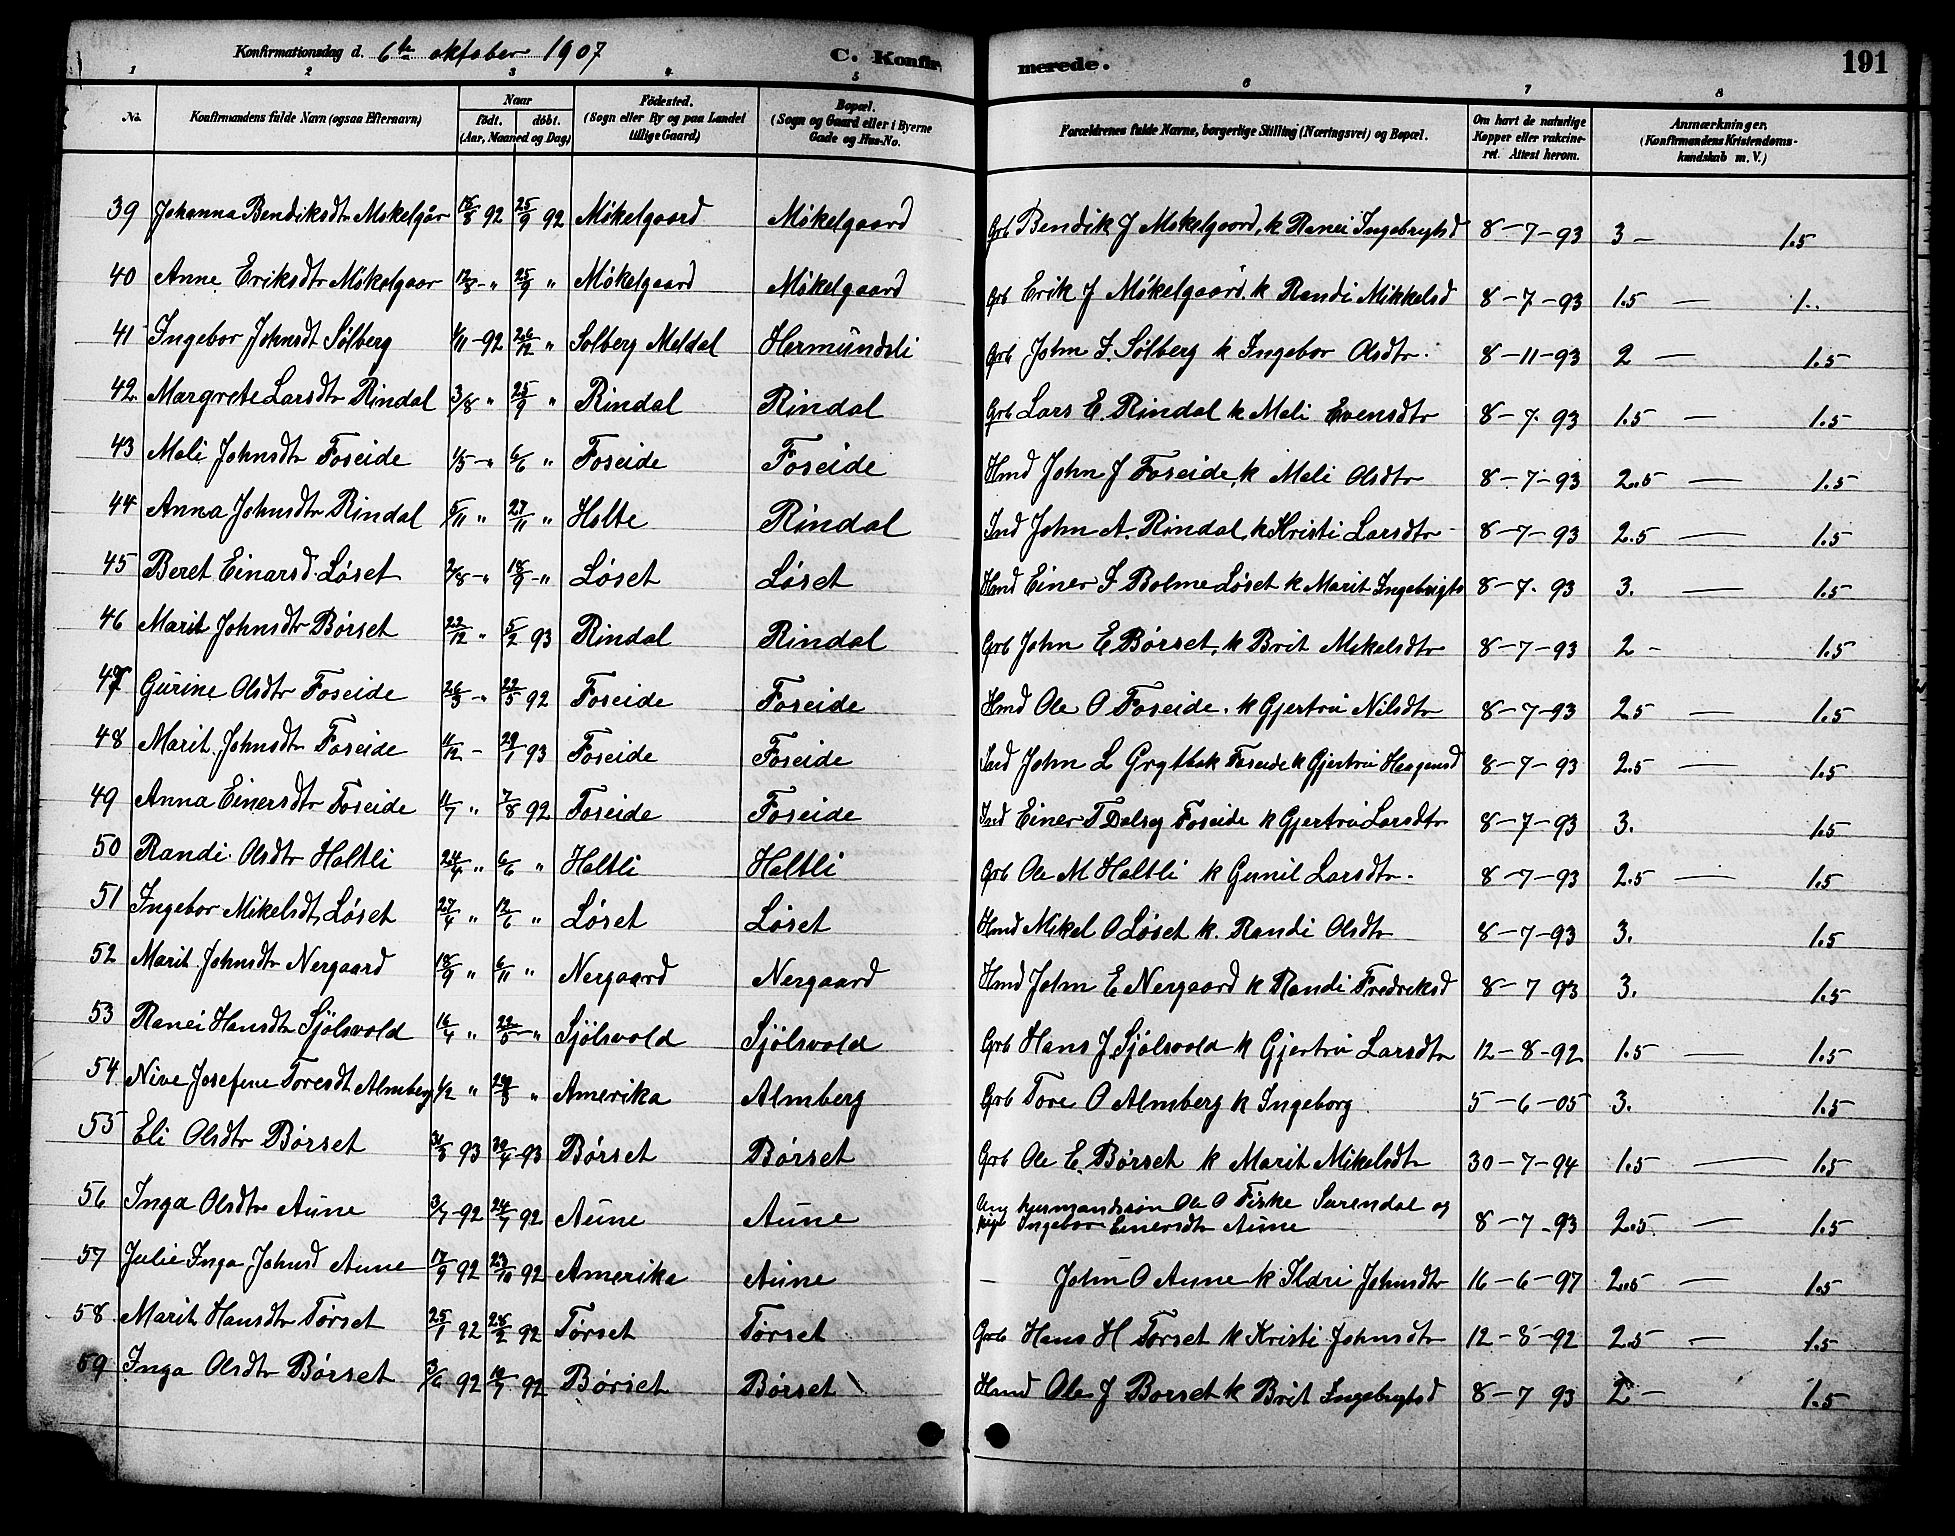 Konfirmationsdag d. 6te oktober 1907 C. Konfirmerede. 191
1 2 3 4 5 6 7 8
No. Konfirmandens fulde Navn (ogsaa Efternavn) Naar født. døbt. (Aar, Maaned og Dag) Fødested. (Sogn eller By og paa Landet tillige Gaard) Bopæl. (Sogn og Gaard eller i Byerne Gade og Hus-No. Forældrenes fulde Navne, borgerlige Stilling (Næringsvei) og Bopæl. Om havt de naturlige Kopper eller vakcineret. Attest herom. Anmærkninger. (Konfirmandens Kristendomskundskab m. V.)
39 Johanna Bendiksdtr Mokelgår 92 25/9 92 Møkelgaard Møkelgaard Grb Bendik J Møkelgaard, k Ranei Ingebrigtsd 8-7-93 3 - 1.5
40 Anne Eriksdtr Møkelgaar 12/8 - " 25/9 " Møkelgaard Møkelgaard Grb Erik J Møkelgaard. k Randi Mikkelsd 8-7-93 1.5 — 1..
41 Ingebor Johnsdt Sølberg 1/11 -92 26/12 " Solberg Meldal Hermundsli Grb John I. Sølberg k Ingebor Olsdtr. 8-11-93 2 — 1.5
42. Margrete Larsdtr Rindal 3/8 " 25/9 " Rindal Rindal Grb Lars E. Rindal k Meli Evensdtr 8-7. 93 1.5 — 1.5
43 Meli Johnsdtr Foseide 1/5 - " 6/6 " Foseide Foseide Hmd John J Foseide, k Meli Olsdtr 8-7-93 2.5 — 1.5
44 Anna Johnsdtr Rindal 5/11 " 27/11 " Holte Rindal Ind John A. Rindal, k Kristi Larsdtr 8-7-93 2.5 — 1.5
45 Beret Einarsd Løset 2/8 - " 18/9 - " Løset Løset Hmd Einer I. Bolme Løset k Marit Ingebrigts 8-7. 93 3. — 1.5
46 Marit Johnsdtr Børset 22/12 " 5/2 93 Rindal Rindal Grb John E Børset, k Brit Mikelsdtr 8-7-93 2 - 1.5
47 Gurine Olsdtr Foseide 26/3 - " 22/5 92 Foseide Foseide Hmd Ole O Foseide. k Gjertru Nilsdtr 8-7-93 2.5 — 1.5
48 Marit. Johnsdtr Foseide 11/12 - 29/1 93 Foseide Foseide Ind John L Grytbak Foseide k Gjertru Haagensd 8-7-93 2.5 — 1.5
49 Anna Einersdtr Foseide 11/7 " 7/8 92 Foseide Foseide Ind Einer T Dalseg Foseide k Gjertru Larsdtr 8-7-93 3. 1.5
50 Randi. Olsdtr Haltli 24/4 " 6/6 " Haltli Haltli Grb Ole M Haltli k Gunil Larsdtr. 8-7-93 2.5 — 1.5
51 Ingebor Mikelsdt Løset 27/4 " 12/6 " Løset Løset Hmd Mikel O Løset k. Randi Olsdtr 8-7-93 3. 1.5
52 Marit Johnsdtr Nergaard 18/9 " 6/11 " Nergaard Nergaard Hmd John E Nergaard k Randi Fredriksd 8-7 93 3. 1.5
53 Ranei Hansdtr Sjølsvold 16/4 " 22/5 - " Sjølsvold Sjølsvold Grb Hans J Sjølsvold k Gjertru Larsdtr 12-8-92 1.5 — 1.5
54 Nive Josefine Toresdt Almberg 1/2 " " Amerika Almberg Grb Tore O Almberg k Ingeborg 5-6-05 3. 1.5
55 Eli Olsdtr Børset 31/3 93 4 93 Børset Børset Grb Ole E. Børset k Marit Mikelsdtr 30-7-94 1.5 — 1.5
56 Inga Olsdtr Aune 3/7 -92 24/7 92 Aune Aune Ung Ole O Fiske Surendal og pige Ingebor Einersdtr Aune 8-7-93 2.5. — 1.5
57 Julie Inga Johnsd Aune 17/9 92 23/10 92 Amerika Aune - John O Aune k Ildri Johnsdtr 16-6-97 2.5 — 1.5
58. Marit Hansdtr Tørset 25/1 92 28/2 92 Tørset Tørset Grb Hans H Tørset k Kristi Johnsdtr 12-8-92 2.5 — 1.5
59 Inga Olsdtr Børset 3/6 92 10/7 92 Børset Børset Hmd Ole J Børset k Brit Ingebrigtsd 8-7 93 2 - 1.5